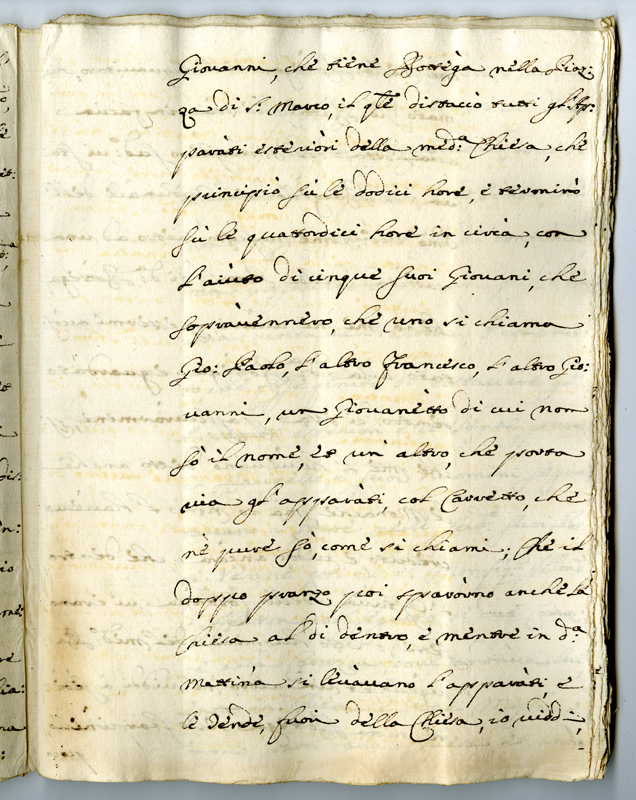 Giovanni, che tiene Bottèga nella Piaz:
za di S. Marco, il qle distaccò tutti gl'Ap:
paràti esteriòri della med.a Chiesa, che
principiò sù le dodici hore, e terminò
sù le quatordici hore in circà, con
l'aiuto di cinque suoi Giovani, che
sopràvennero, che uno si chiama
Gio: Paolo, l'altro Francesco, l'altro Gio:
vanni, un Giovanètto di cui non
sò il nome, et un'altro, che porta
via gl'apparàti, col Carretto, che
nè pure sò, come si chiami; Che il
doppo pranzo poi sparàrno anche la
Chiesa al' di dentro, e mentre in d.a
Mattina si levàvano l'apparàti, e
le Tende, fuori della Chiesa, io viddi,